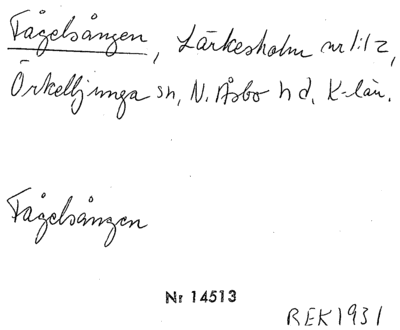 Fågelsången, Lärkesholm nr 1:12,
Örkelljunga sn, N. Åsbo hd. K-län.
Fågelsången
Nr 14513
REK 1931